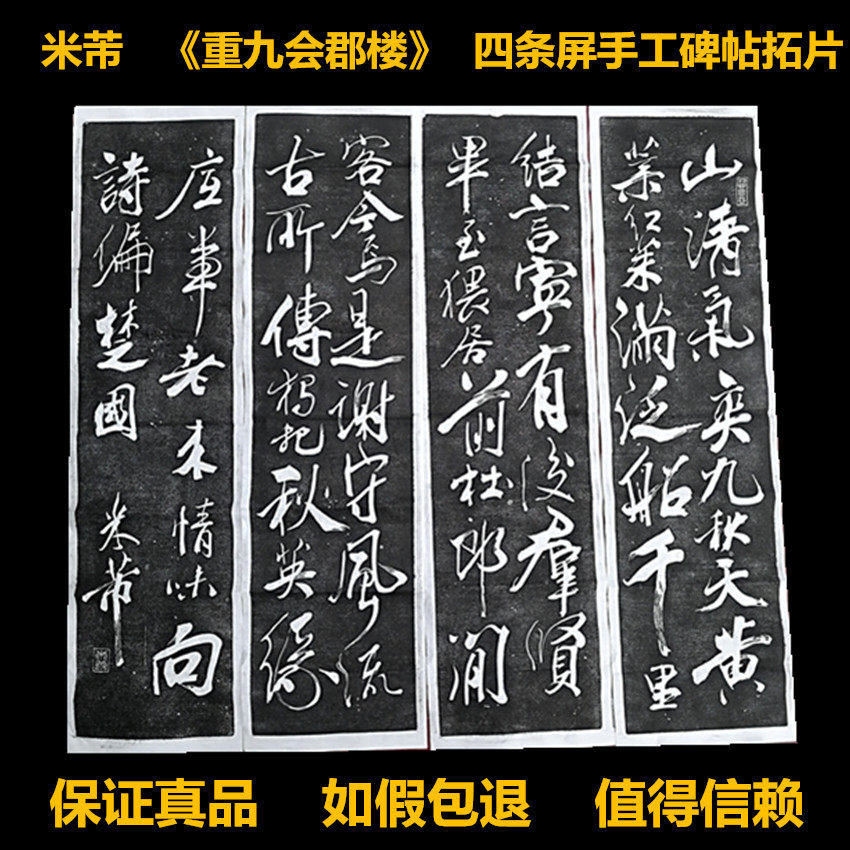 米芾 《重九会郡楼》 四条屏手工碑帖拓片
山清氣爽九秋天黄
菊紅茱滿泛船千里
結言寧有後羣賢
畢至猥居前杜郎閒
客今焉是謝守風流
古所傳獨把秋英緣
底事老来情味向
詩偏楚國 米芾
保证真品 如假包退 值得信赖